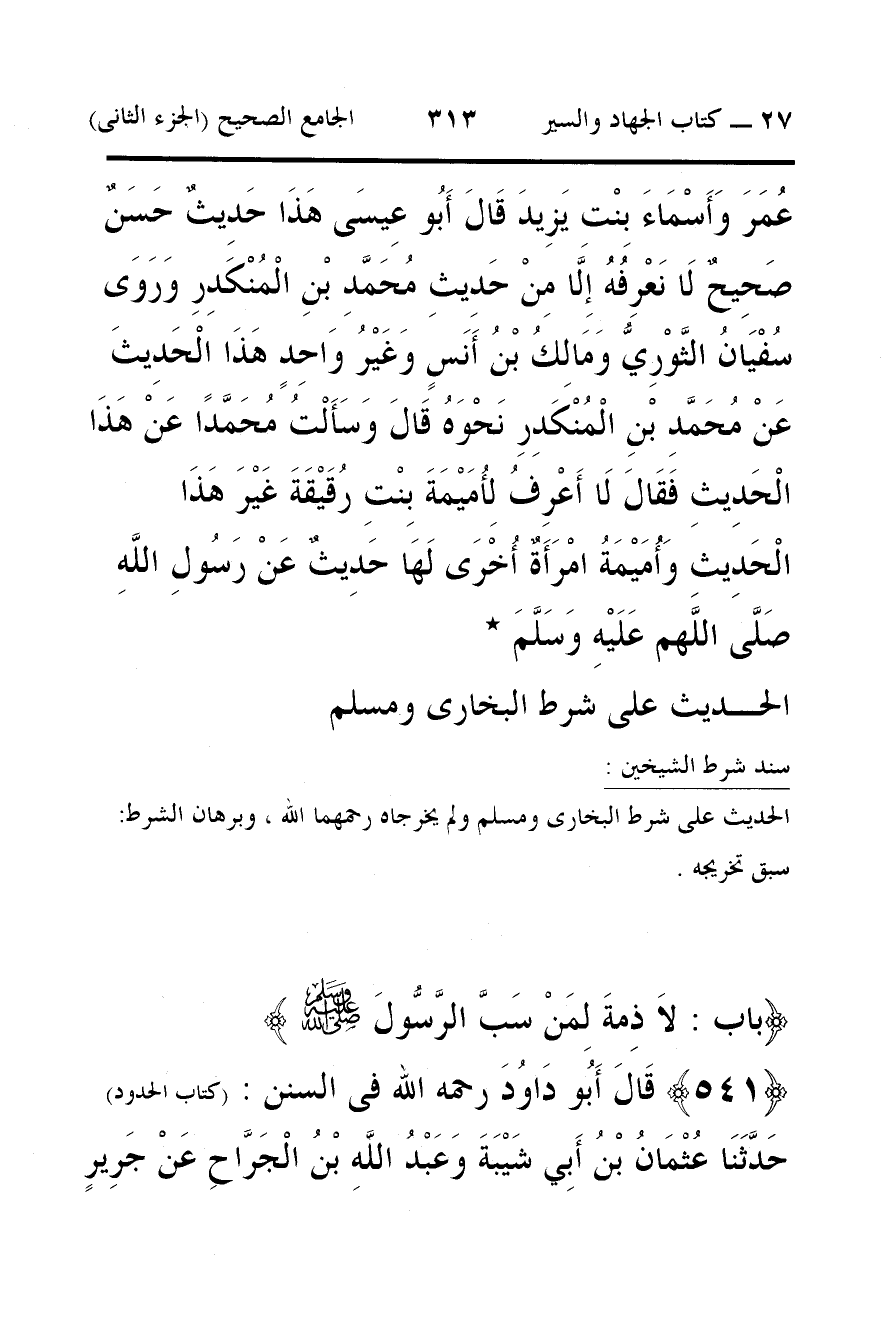 ٢٧ ــ كتاب الجهاد والسير ٣١٣ الجامع الصحيح (الجزء الثانى)
عُمَرَ وَأَسْمَاءَ بِنْتِ يَزِيدَ قَالَ أَبُو عِيسَى هَذَا حَدِيثٌ حَسَنٌ
صَحِيحٌ لَا نَعْرِفُهُ إِلَّا مِنْ حَدِيثِ مُحَمَّدِ بْنِ الْمُنْكَدِرِ وَرَوَى
سُفْيَانُ الثَّوْرِيُّ وَمَالِكُ بْنُ أَنَسٍ وَغَيْرُ وَاحِدٍ هَذَا الْحَدِيثَ
عَنْ مُحَمَّدِ بْنِ الْمُنْكَدِرِ نَحْوَهُ قَالَ وَسَأَلْتُ مُحَمَّدًا عَنْ هَذَا
الْحَدِيثِ فَقَالَ لَا أَعْرِفُ لِأُمَيْمَةَ بِنْتِ رُقَيْقَةَ غَيْرَ هَذَا
الْحَدِيثِ وَأُمَيْمَةُ امْرَأَةٌ أُخْرَى لَهَا حَدِيثٌ عَنْ رَسُولِ اللَّهِ
صَلَّى اللَّهم عَلَيْهِ وَسَلَّمَ *
الحـــديث على شرط البخارى ومسلم
سند شرط الشيخين :
الحديث على شرط البخارى ومسلم ولم يخرجاه رحمهما الله ، وبرهان الشرط:
سبق تخريجه .
﴿باب : لاَ ذِمةَ لِمَنْ سَبَّ الرَّسُولَ ﷺ ﴾
﴿٥٤١﴾ قَالَ أَبُو دَاوُدَ رحمه الله فى السنن : (كتاب الحدود)
حَدَّثَنَا عُثْمَانُ بْنُ أَبِي شَيْبَةَ وَعَبْدُ اللَّهِ بْنُ الْجَرَّاحِ عَنْ جَرِيرٍ